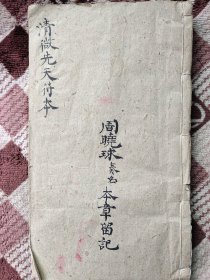 清微先天符本
周曉珠本章留記